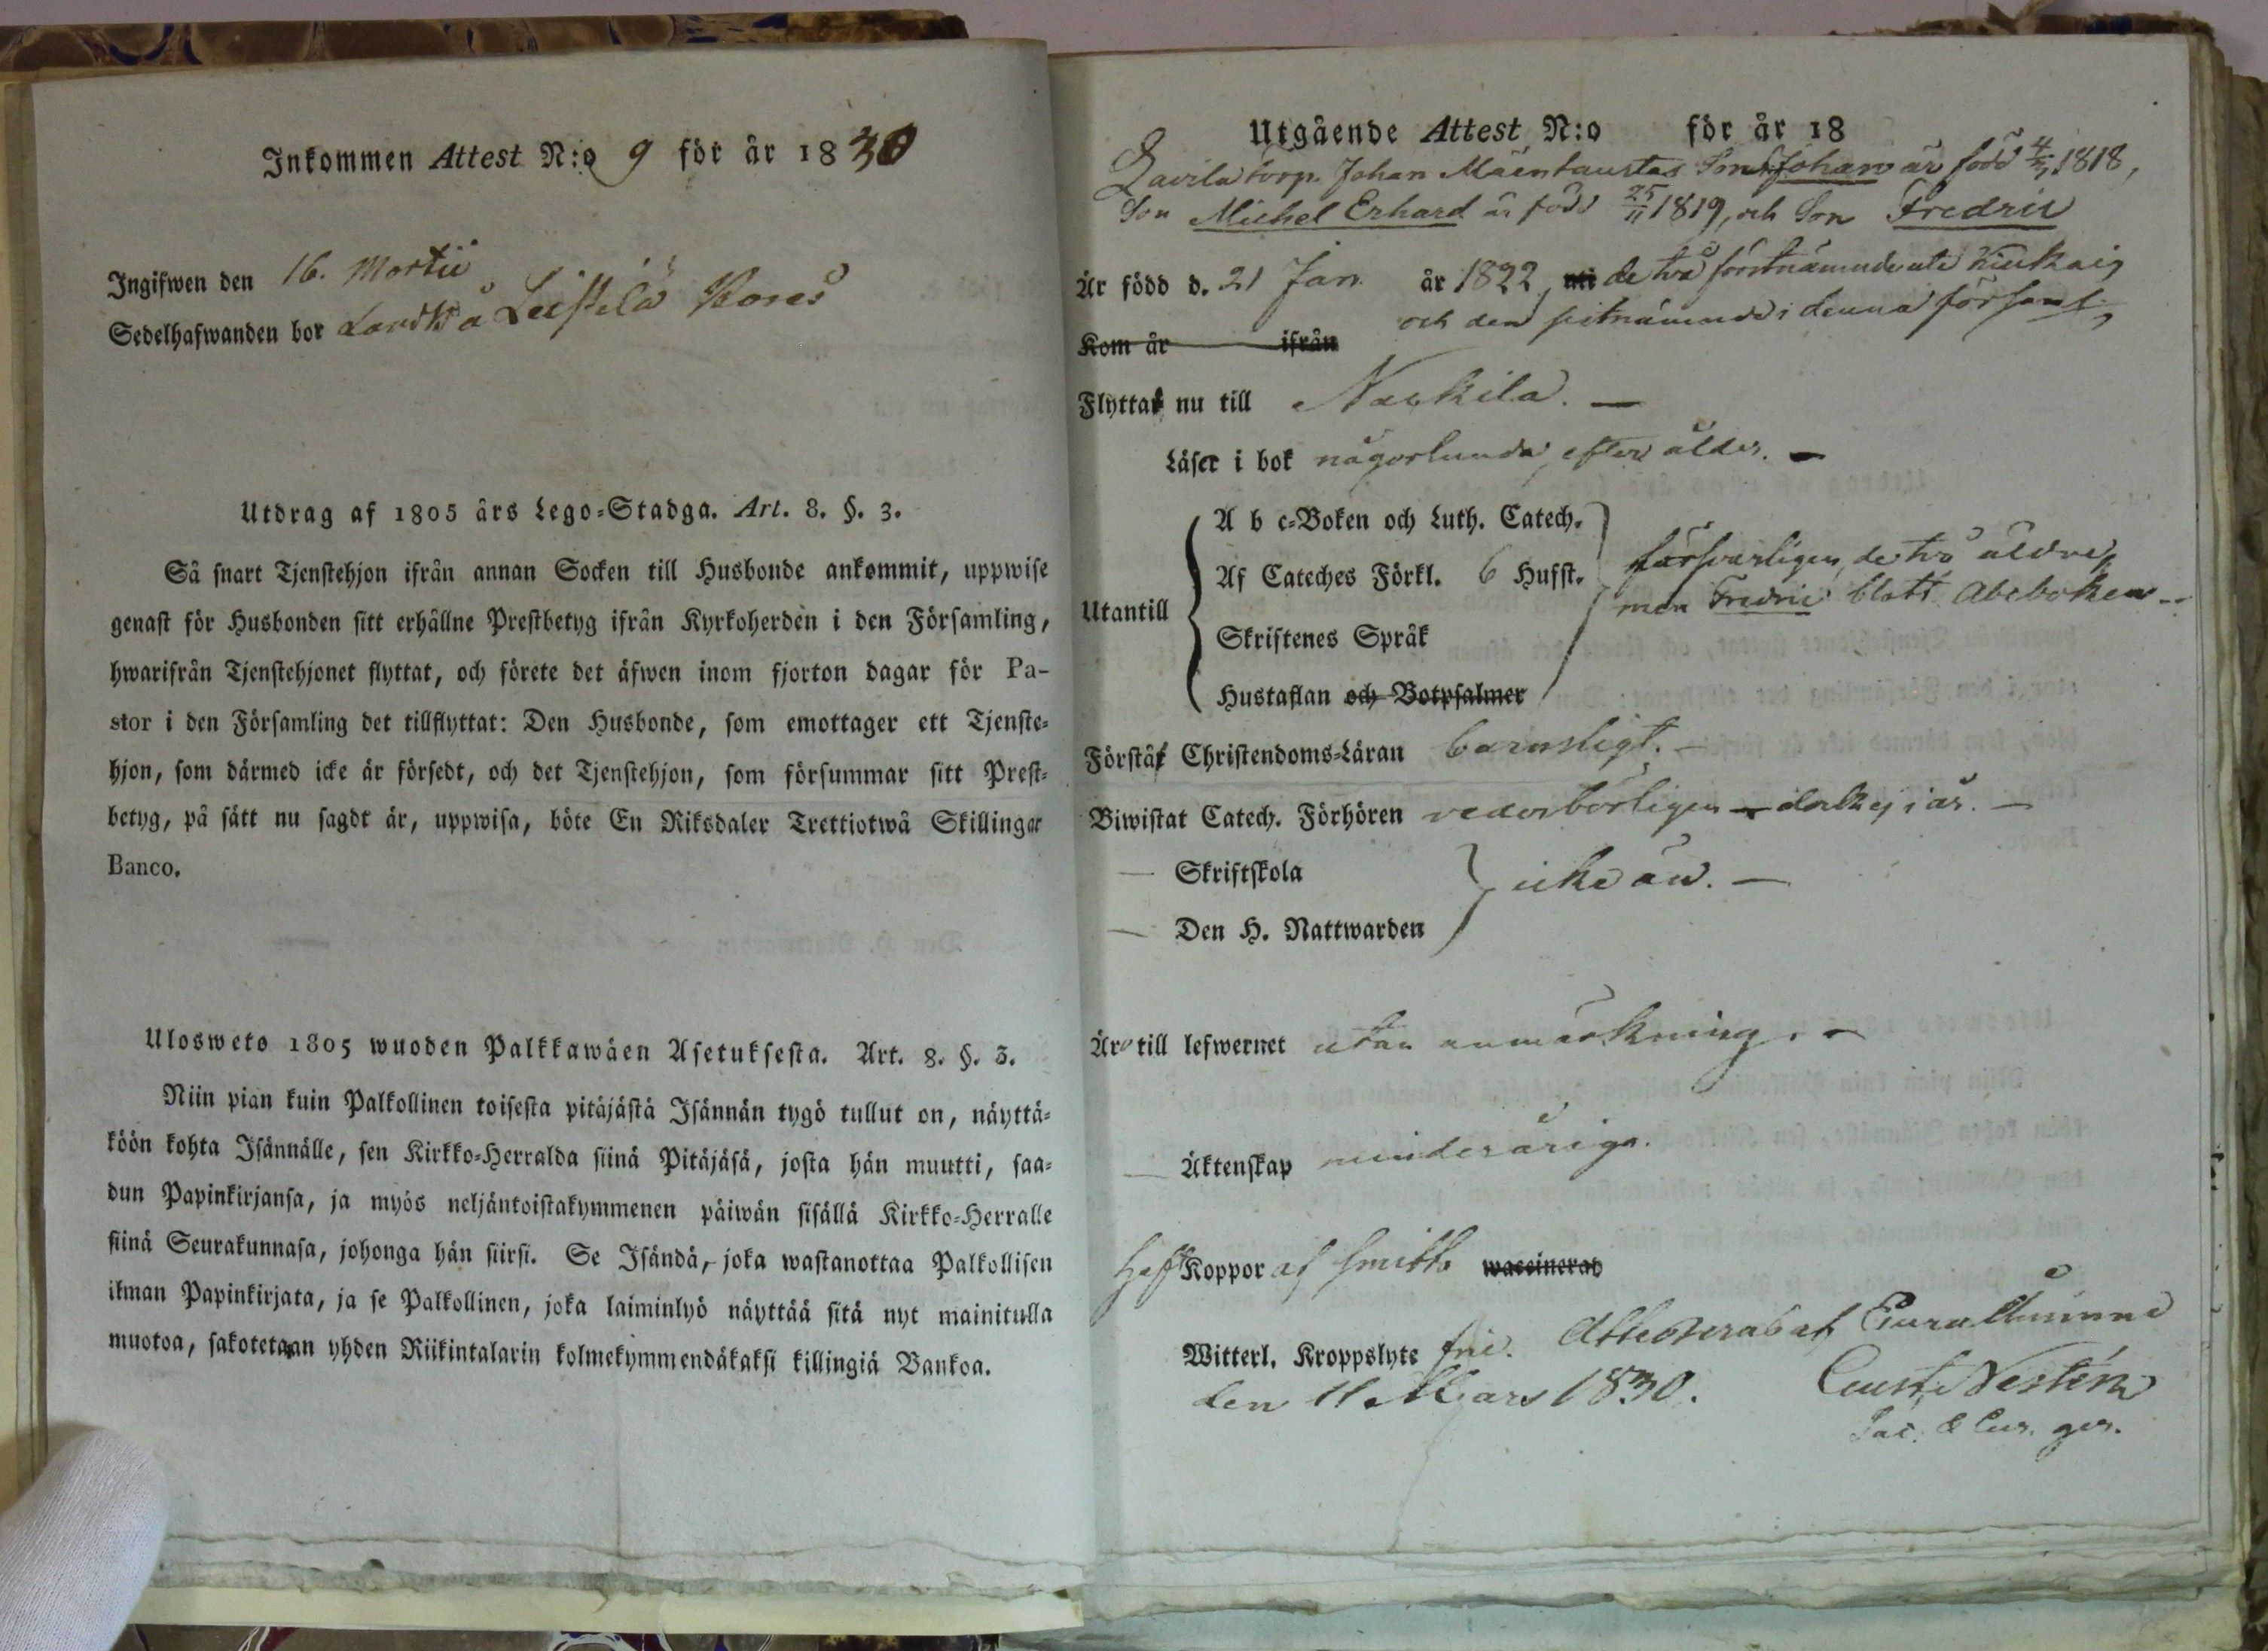 Inkommen Attest N:o 9 för år 1830
Ingifwen den 16. Martii
Sedelhafwanden bor Landtb å Leistilä
Utdrag af 1805 års Lego-Stadga. Art. 8. §. 3.
Så snart Tjenstehjon ifrån annan Socken till Husbonde ankommit, uppwise
genast för Husbonden sitt erhållne Prestbetyg ifrån Kyrkoherden i den Församling,
hwarifrån Tjenstehjonet flyttat, och förete det äfwen inom fjorton dagar för Pa-
stor i den Församling det tillflyttat: Den Husbonde, som emottager ett Tjenste-
hjon, som därmed icke är försedt, och det Tjenstehjon, som försummar sitt Prest-
betyg, på sätt nu sagdt är, uppwisa, böte En Riksdaler Trettiotwå Skillingar
Banco.
Ulosweto 1805 wuoden Palkkawäen Asetuksesta. Art. 8. §. 3.
Niin pian kuin Palkollinen toisesta pitäjästä Isännän tygö tullut on, näyttä-
köön kohta Isännälle, sen Kirkko-Herralda siinä Pitäjäsä, josta hän muutti, saa-
dun Papinkirjansa, ja myös neljäntoistakymmenen päiwän sisällä Kirkko-Herralle
siinä Seurakunnasa, johonga hän siirsi. Se Isändä, joka wastanottaa Palkollisen
ilman Papinkirjata, ja se Palkollinen, joka laiminlyö näyttää sitä nyt mainitulla
muotoa, sakotetaan yhden Riikintalarin kolmekymmendäkaksi killingiä Bankoa.
Utgående Attest N:o för år 18
torp. Johan Mäentaustas Son Johan är född 1818,
Son Michel Erhard är född 25/11 1819, och Son Fredric
Är född d. 21 Jan. år 1822, uti de två förstnämnde uti Kiukais
och den sistnämnde i denna församl.
Kom år ifrån
Flyttar nu till Nackila. —
Läser i bok någorlunda, efter ålder. —
Utantill
A b c-Boken och Luth. Catech.
Af Cateches Förkl. 6 Hufst.
Skriftenes Språk
Hustaflan och Botpsalmer
försvarligen, de två äldre,
men Fredric blott Abcboken —
Förstår Christendoms-Läran barnsligt. —
Biwistat Catech. Förhören vederbörligen — dock ej i år. —
— Skriftskola
— Den H. Nattwarden
icke än. —
Äro till lefwernet utan anmärkning. —
— Äktenskap minderåriga.
Haft Koppor af smitta waccinerad
Witterl. Kroppslyte fri. Attesterad af Eura Åminne
den 11 Mars 1830. Gust. Nestén
Sac. & Cur. ger.